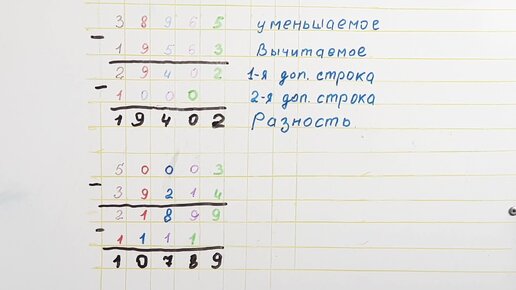 3 8 9 6 5 уменьшаемое
-
1 9 5 6 3 Вычитаемое
2 9 4 0 2 1-я доп. строка
-
1 0 0 0 2-я доп. строка
1 9 4 0 2 Разность
5 0 0 0 3
-
3 9 2 1 4
2 1 8 9 9
-
1 1 1 1
1 0 7 8 9